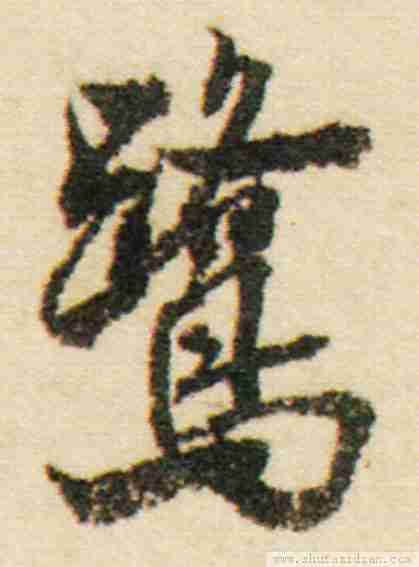 鷺
www.shufazidian.com